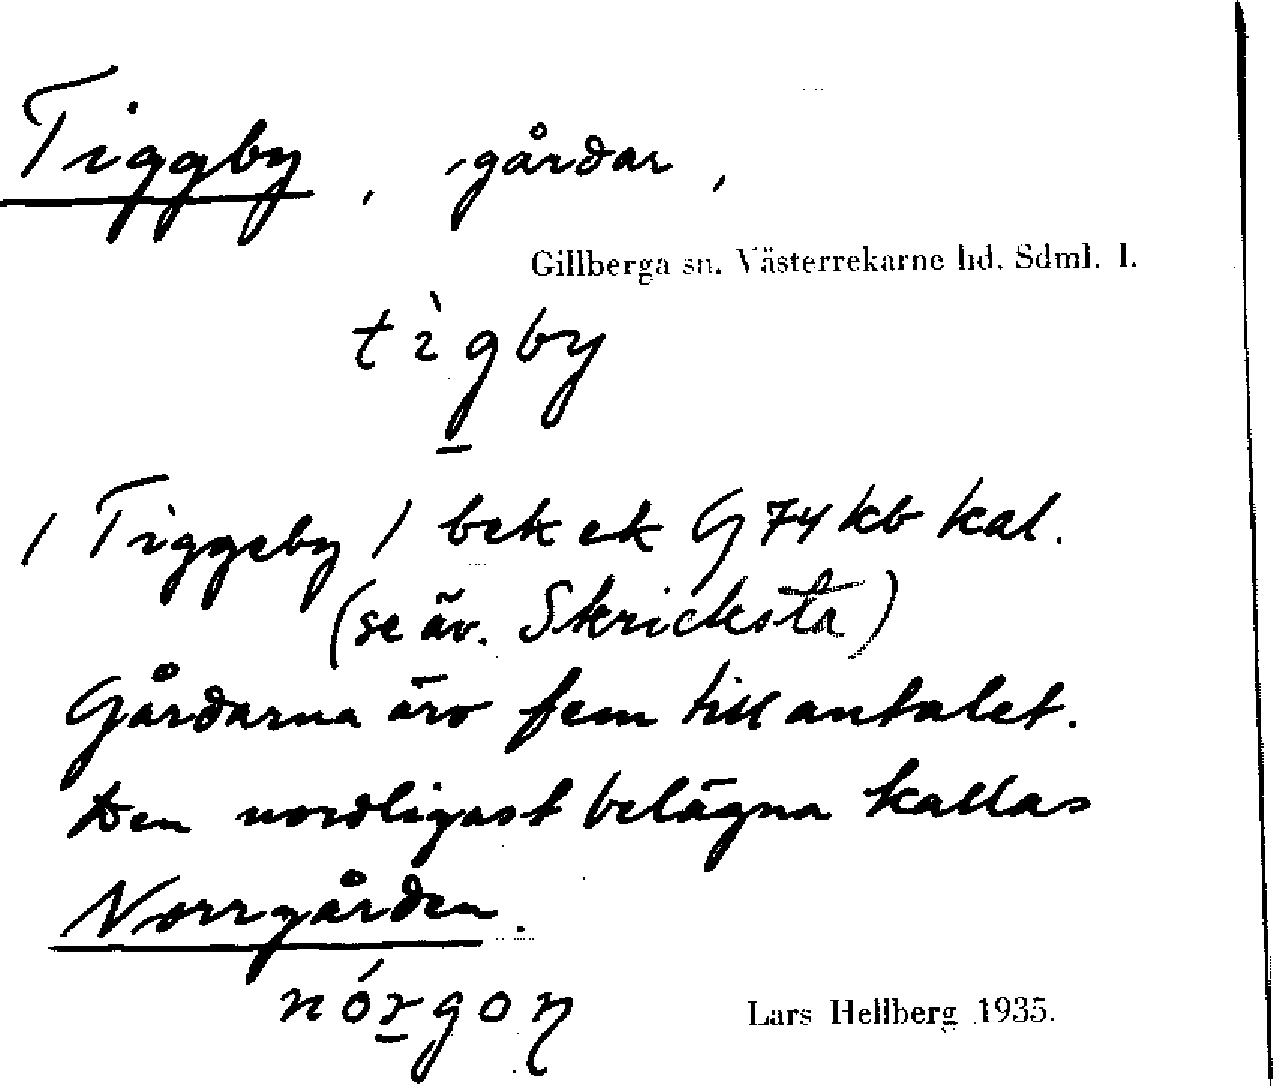 Tiggby, gårdar,
Gillberga sn. Västerrekarne hd. Sdml. l.
tìg̲by
/ Tiggeby / bek ek G 74 kb kal.
(se äv. Skricksta)
Gårdarna äro fem till antalet.
Den nordligast belägna kallas
Norrgården.
nór̲goꞃ
Lars Hellberg 1935.